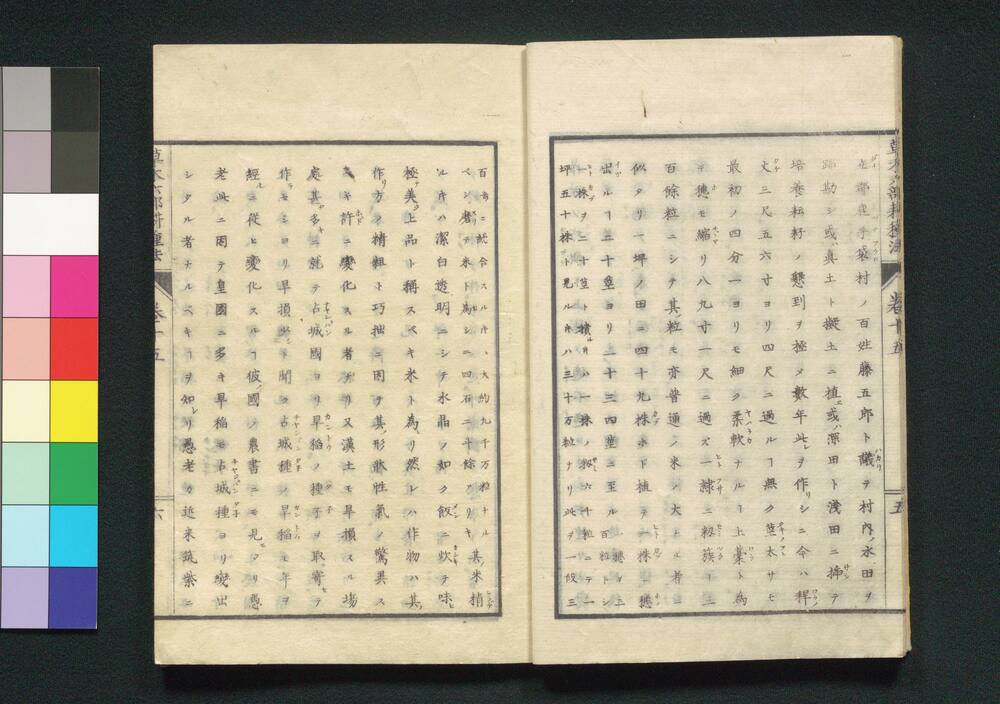 部手袋村ノ百姓藤五郎ト議テ村内ノ水田ヲ
踏勘シ或ハ真土ト擬土ニ植ヱ或ハ深田ト淺田ニ挿テ
培養耘耔ノ懇到ヲ極メ數年此レヲ作リシニ今ハ稈ノ
丈三尺五六寸ヨリ四尺ニ過ルヿ無ク莖太サモ
最初ノ四分一ヨリモ細ク柔軟ナルヿ上藁ト為
穗モ縮リ八九寸一尺ニ過ズ一隷ニ籾簇ヿ二
百餘粒ニシテ其粒モ亦普通ノ米ノ大ナル者ニ
似タリ一坪ノ田ニ四十九株ホド植テ一株ニ穗ノ
出ルヿ二十莖ヨリ二十三四莖ニ至ル
一株ヲ二十莖ト積ルハ一株ノ籾六千粒ニテ一
坪五十株ト見ルキハ三十万粒ナリ此ヲ一段三
百歩ニ紙合スルキハ大約九千万粒ナル
ベシ米ト為シ二四石二千餘アリキ其米精
ルキハ潔白透明ニシテ水晶ノ如ク飯ニ炊テ味
極テ美上品ト稱スベキ米ト為リ然レハ作物ハ其
作リ方ノ精粗ト巧拙ニ因テ其ノ形狀性氣ノ驚異ス
キ許ニ變化スル者ナリ又漢土モ旱損スル場
處甚ダ多キニ就テ占城國ヨリ早稲ノ種子ヲ取寄セテ
作ラセシヨリ旱損少シト聞ク占城種ノ早稲モ年ヲ
經ルニ從ヒ變化スルヿ彼ノ國ノ農書ニモ見ヱタリ愚
老此ニ因テ皇國ニ多キ早稲モ占城種ヨリ變出
シタル者ナルベキヿヲ知レリ愚老カ近来筑紫ニ
草木六部耕種法
卷十五
五
卷十五
六